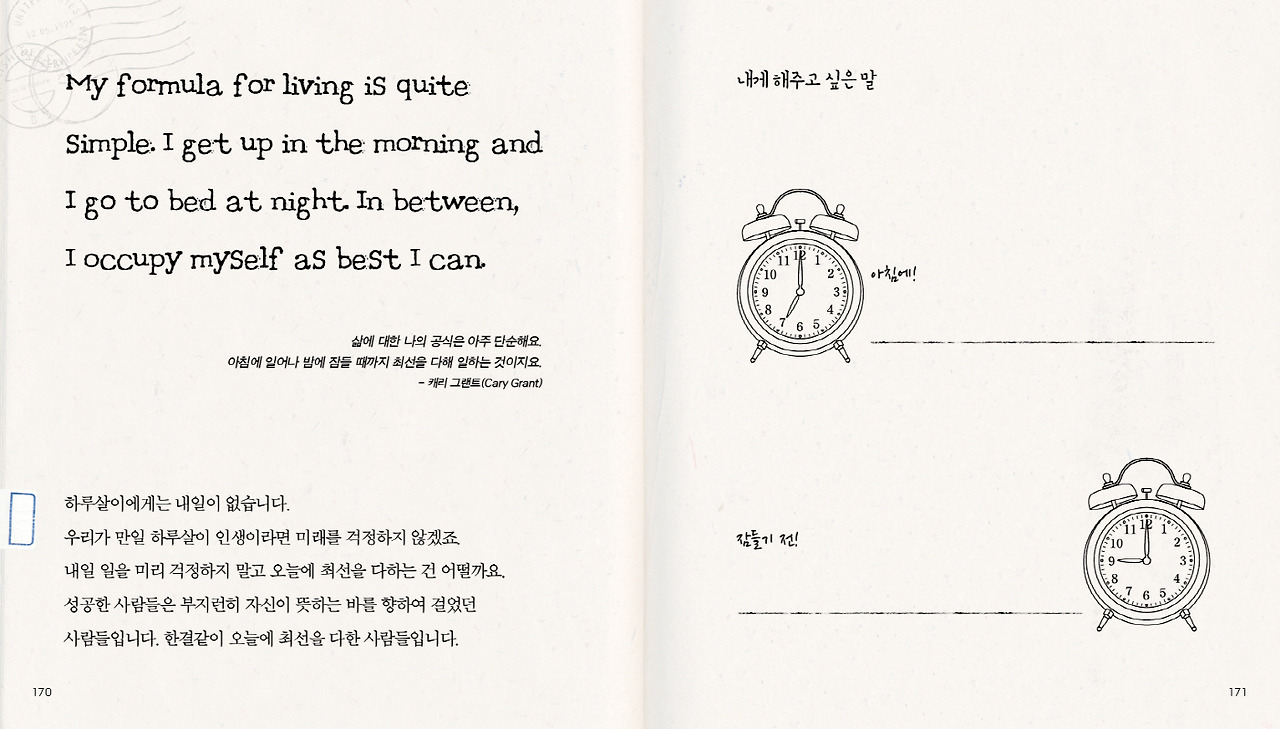 My formula for living is quite
simple. I get up in the morning and
I go to bed at night. In between,
I occupy myself as best I can.
삶에 대한 나의 공식은 아주 단순해요.
아침에 일어나 밤에 잠들 때까지 최선을 다해 일하는 것이지요.
- 캐리 그랜트(Cary Grant)
하루살이에게는 내일이 없습니다.
우리가 만일 하루살이 인생이라면 미래를 걱정하지 않겠죠.
내일 일을 미리 걱정하지 말고 오늘에 최선을 다하는 건 어떨까요.
성공한 사람들은 부지런히 자신이 뜻하는 바를 향하여 걸었던
사람들입니다. 한결같이 오늘에 최선을 다한 사람들입니다.
170
내게 해주고 싶은 말
12
11 1
10 2
9 3
8 4
7 5
6
아침에!
잠들기 전!
12
11 1
10 2
9 3
8 4
7 5
6
171